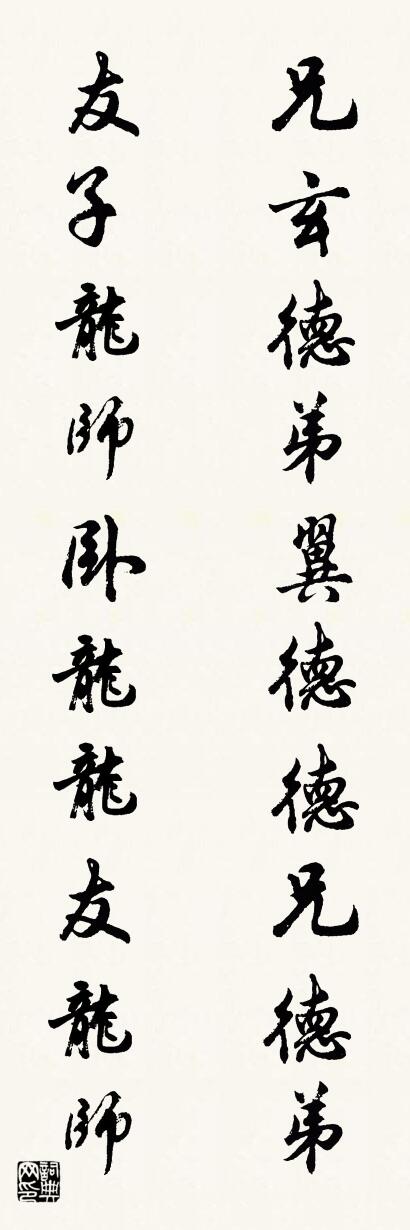 兄玄德弟翼德德兄德弟
友子龍師卧龍龍友龍師
詞典網印